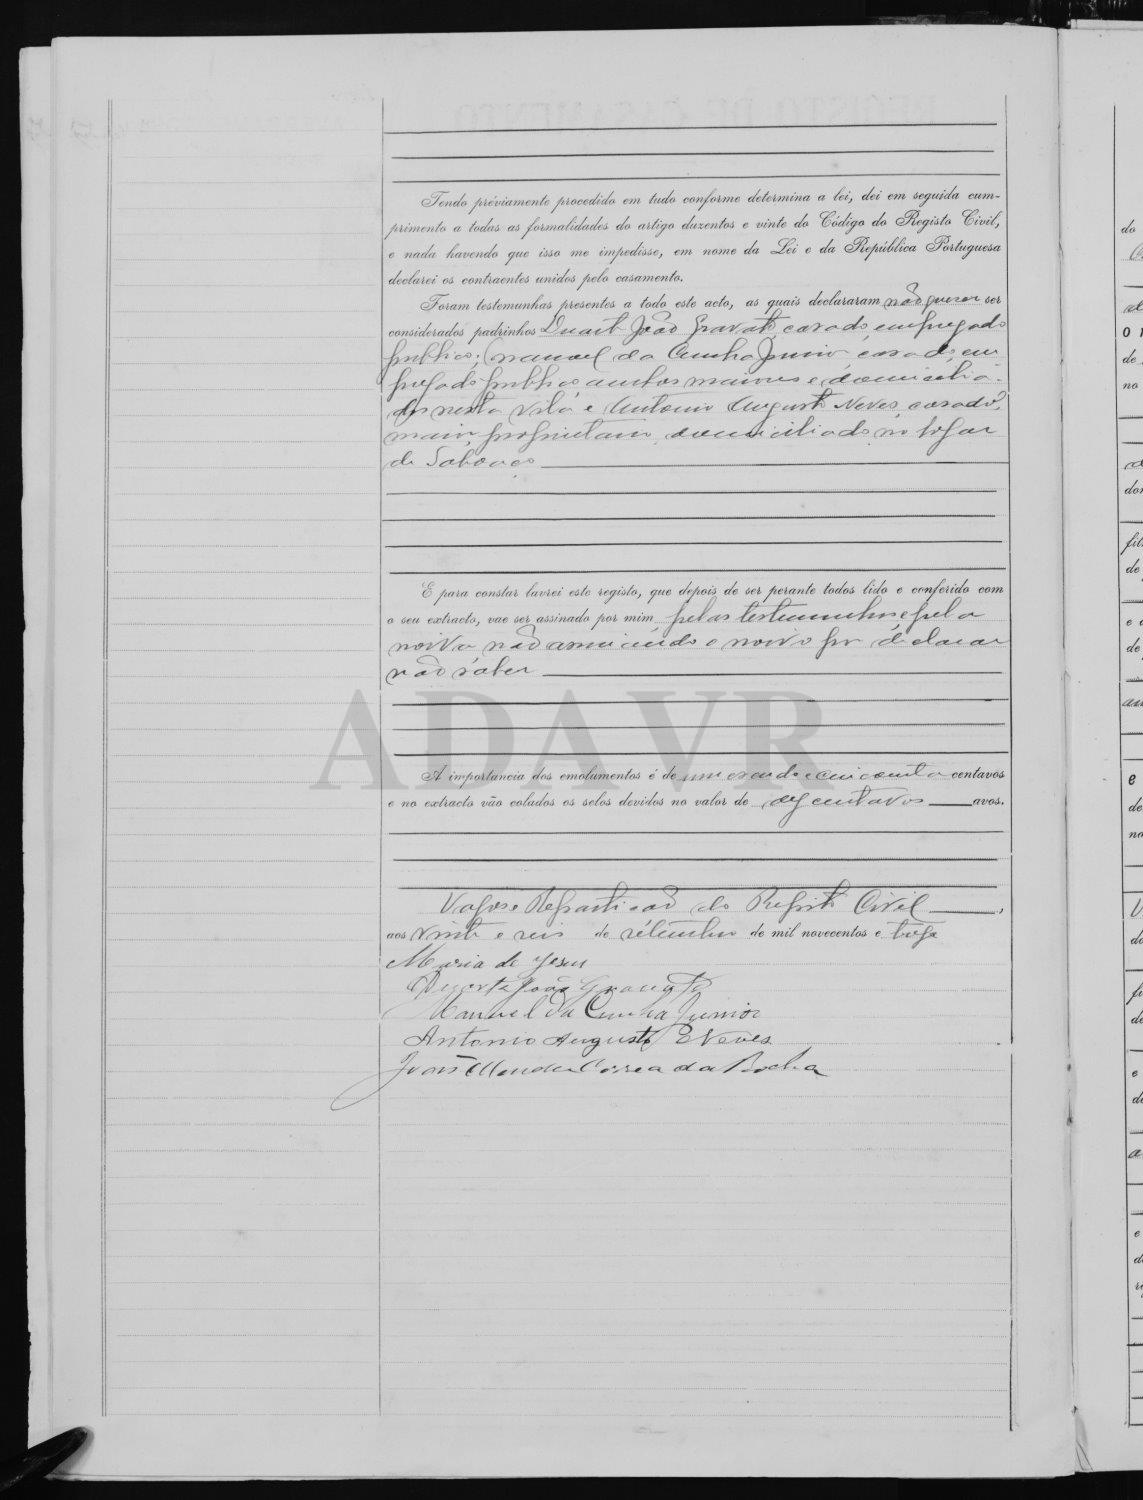 Tendo préviamente procedido em tudo conforme determina a lei, dei em seguida cum-
primento a todas as formalidades do artigo duzentos e vinte do Código do Registo Civil,
e nada havendo que isso me impedisse, em nome da Lei e da República Portuguesa
declarei os contraentes unidos pelo casamento.
Foram testemunhas presentes a todo este acto, as quais declararam não querer ser
considerados padrinhos Duarte João Gravato, casado, empregado
publico; Manuel da Cunha Junior, casado, em
pregado publico ambos maiores e domicilia-
dos nesta vila e Antonio Augusto Neves, casado,
maior, proprietario, domiciliado no logar
de
E para constar lavrei este registo, que depois de ser perante todos lido e conferido com
o seu extracto, vae ser assinado por mim pelas testemunhas e pela
noiva não o noivo por declarar
não saber
ADAVR
A importancia dos emolumentos é de um escudo e cincoenta centavos
e no extracto vão colados os selos devidos no valor de dez centavos avos.
Vagos e Repartição do Registo Civil,
aos vinte e seis de setembro de mil novecentos e treze
Maria de Jesus
Duarte João Gravato
Manuel da Cunha Junior
Antonio Augusto Neves
João Mendes Correa da Rocha
do
de
no
dos
e
de
no